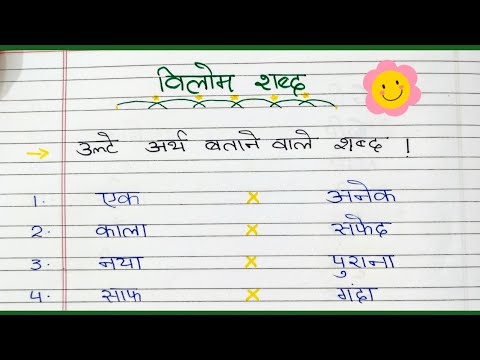 विलोम शब्द
→ उल्टे अर्थ बताने वाले शब्द !
1. एक x अनेक
2. काला x सफेद
3. नया x पुराना
4. साफ x गंदा